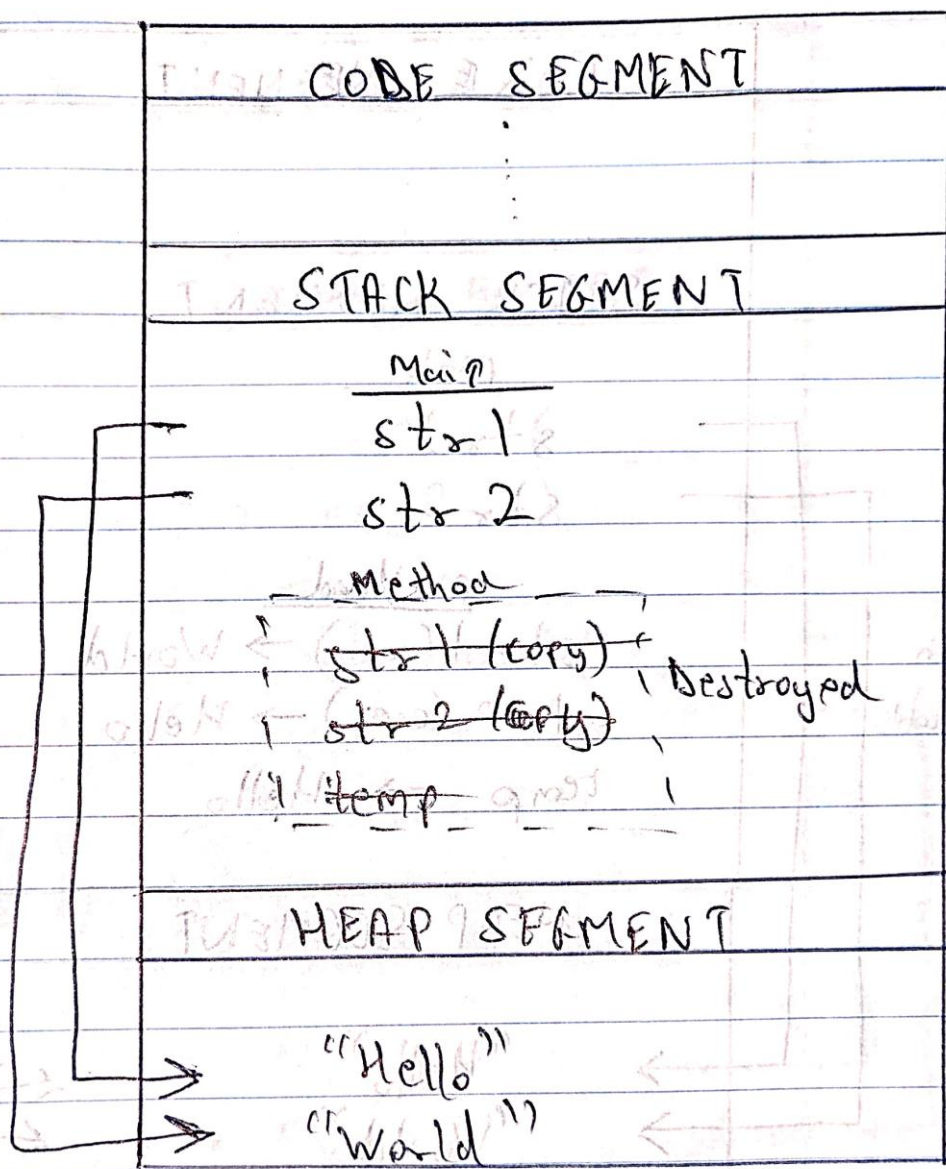 CODE SEGMENT
STACK SEGMENT
Main
str1
str2
Method
str1 (copy)
str2 (copy)
Destroyed
temp
HEAP SEGMENT
"Hello"
"World"